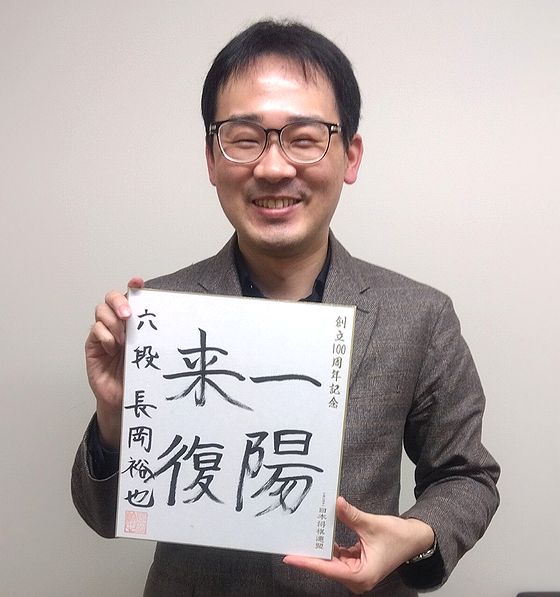 創立100周年記念
一陽
来復
六段 長岡裕也
日本将棋連盟